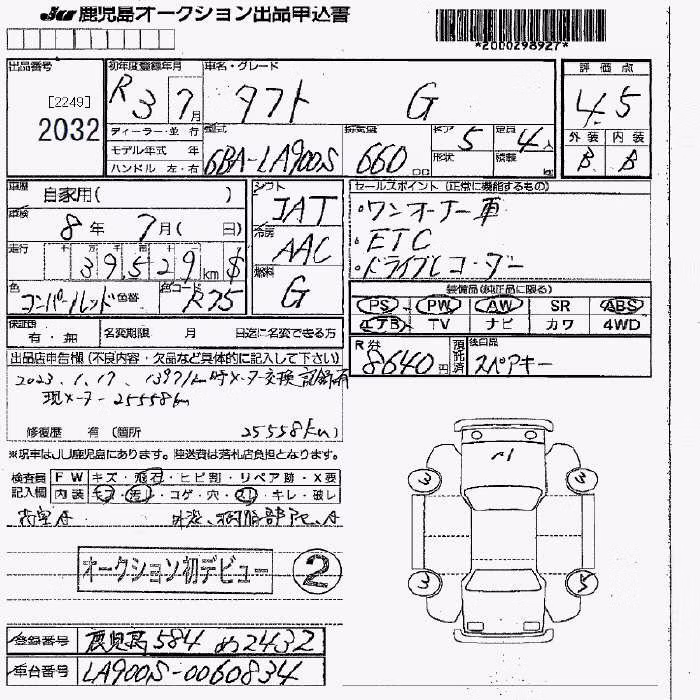 JU 鹿児島オークション出品申込書
*2000298927*
出品番号 初年度登録年月 車名・グレード 評価点
[2249] 2032 R3 7月 タフト G 4.5
ディーラー・並行 型式 排気量 ドア 5 定員 4人 外装 内装
モデル年式 年 6BA-LA900S 660cc 形状 積載 kg B B
ハンドル 左・右
車歴 自家用( ) シフト IAT セールスポイント(正常に機能するもの)
車検 8年 7月( 日) 冷房 AAC ・ワンオーナー車
走行 十 万 千 百 十 39529km $ ・ETC
色 色替 色コード R75 燃料 G ・ドライブレコーダー
装備品(純正品に限る)
PS PW AW SR ABS
エアB TV ナビ カワ 4WD
保証書 有・無 名変期限 月 日迄に名変できる方
R券 8640円 預託済 後日品 スペアキー
出品店申告欄(不良内容・欠品など具体的に記入して下さい)
2023.1.17. 13971km時メーター交換記録有
現メーター25558km
修復歴 有〔箇所 25558km〕
※現車はJU鹿児島にあります。陸送費は落札店負担となります。
検査員記入欄 FW キズ・飛石・ヒビ割・リペア跡・X要
内装 キズ・汚れ・コゲ・穴・スレ・キレ・破レ
荷室A
オークション初デビュー ②
3 3
3 5
登録番号 鹿児島 584 め 2432
車台番号 LA900S-0060834